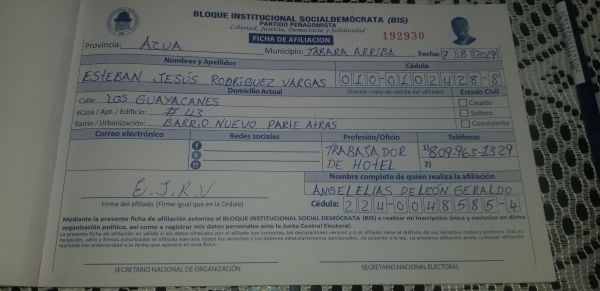 BLOQUE INSTITUCIONAL SOCIALDEMÓCRATA (BIS)
PARTIDO PEÑAGOMISTA
Libertad, Justicia, Democracia y Solidaridad
192930
FICHA DE AFILIACION
Provincia: AZUA Municipio: TABARA ARRIBA Fecha: 7/8/2019
Nombres y Apellidos Cédula
ESTEBAN JESÚS RODRIGUEZ VARGAS 010-0102428-8
Domicilio Actual (Anexar copia de cédula del afiliado) Estado Civil
Calle: LOS GUAYACANES Casado
#Casa / Apt. / Edificio: # 43 Soltero
Barrio / Urbanización: BARRIO NUEVO PARTE ATRAS Conviviente
Correo electrónico Redes sociales Profesión/Oficio Teléfonos
TRABAJADOR DE HOTEL 1) 809-963-1329
2)
Nombre completo de quien realiza la afiliación
E.J.R.V ANGEL ELIAS DE LEÓN GERALDO
Firma del afiliado (Firme igual que en la Cédula) Cédula: 224-0048585-4
Mediante la presente ficha de afiliación autorizo al BLOQUE INSTITUCIONAL SOCIAL DEMÓCRATA (BIS) a realizar mi inscripción única y exclusiva en dicha
organización política, así como a registrar mis datos personales ante la Junta Central Electoral.
SECRETARIO NACIONAL DE ORGANIZACIÓN SECRETARIO NACIONAL ELECTORAL